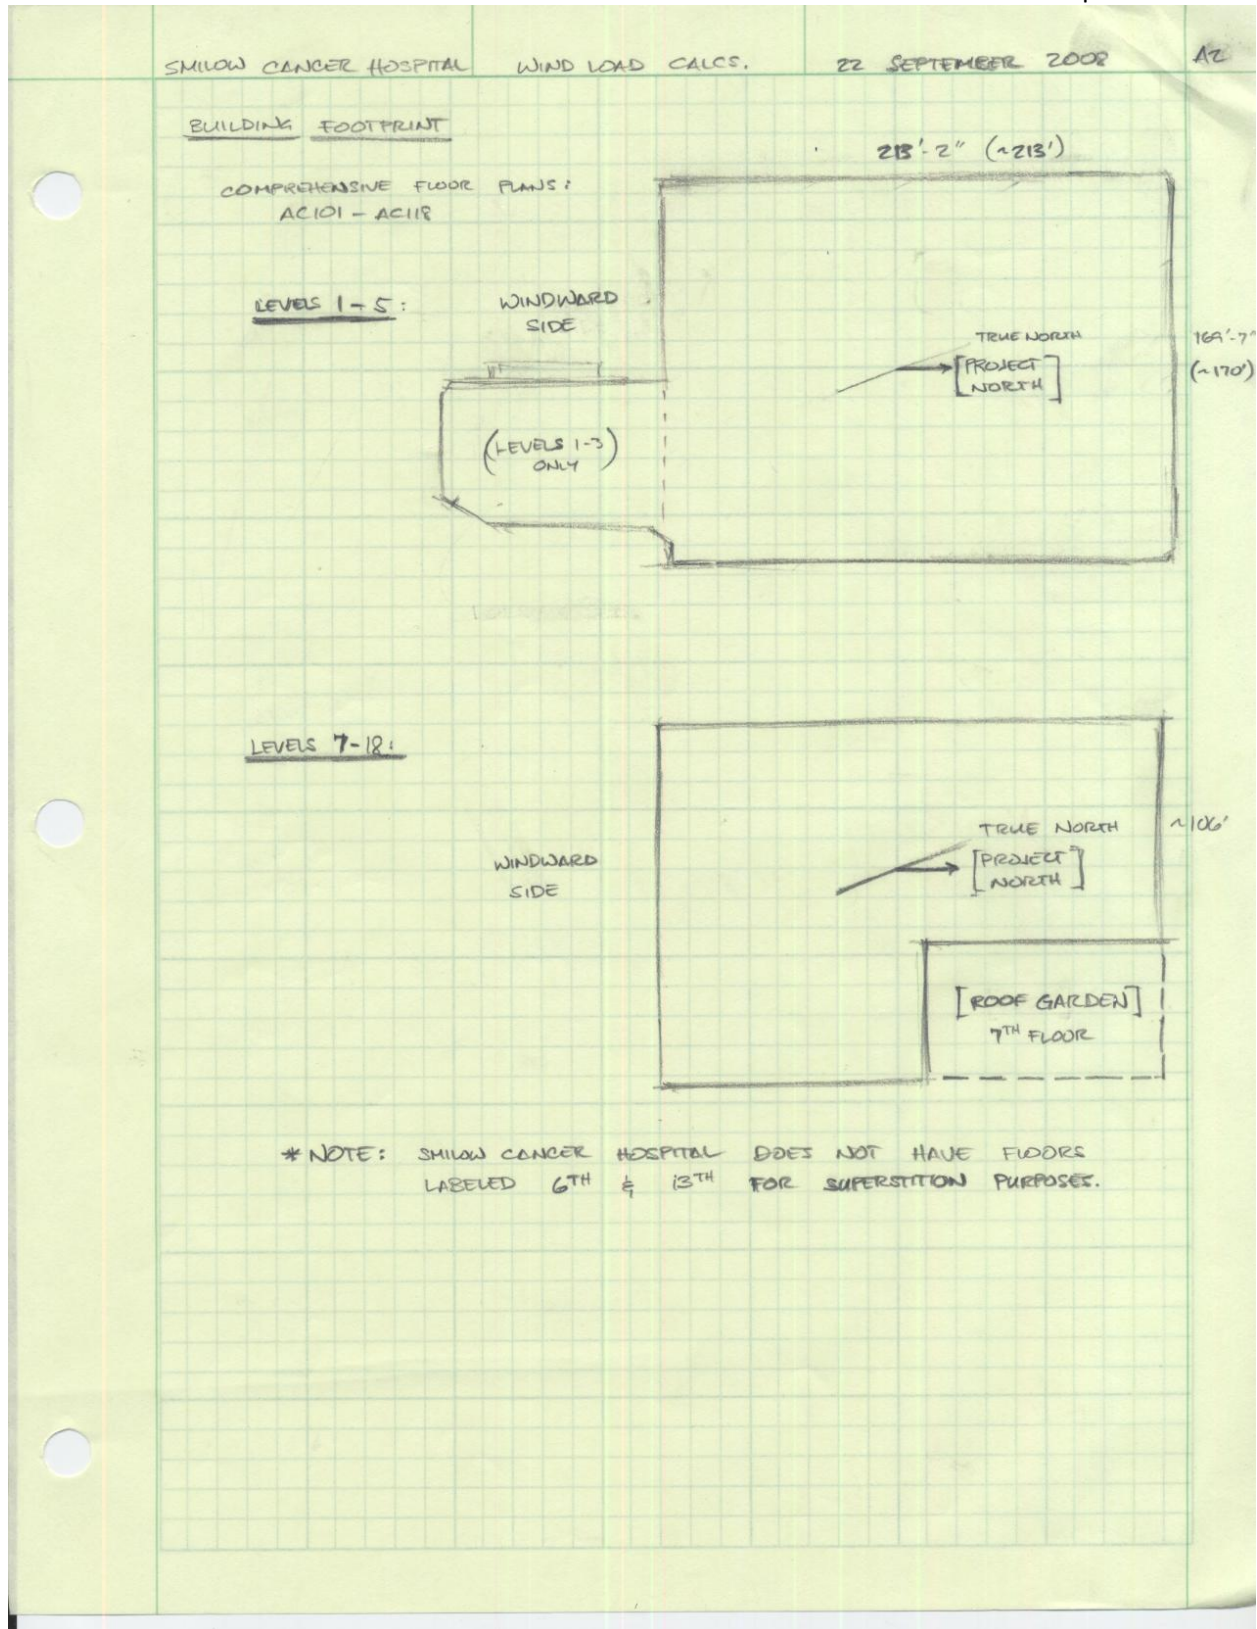 SMILOW CANCER HOSPITAL WIND LOAD CALCS. 22 SEPTEMBER 2008 A2
BUILDING FOOTPRINT
213'-2" (~213')
COMPREHENSIVE FLOOR PLANS:
AC101 - AC118
LEVELS 1-5:
WINDWARD
SIDE
TRUE NORTH
[PROJECT
NORTH]
169'-7"
(~170')
(LEVELS 1-3
ONLY)
LEVELS 7-18:
WINDWARD
SIDE
TRUE NORTH
[PROJECT
NORTH]
~106'
[ROOF GARDEN]
7TH FLOOR
* NOTE: SMILOW CANCER HOSPITAL DOES NOT HAVE FLOORS
LABELED 6TH & 13TH FOR SUPERSTITION PURPOSES.